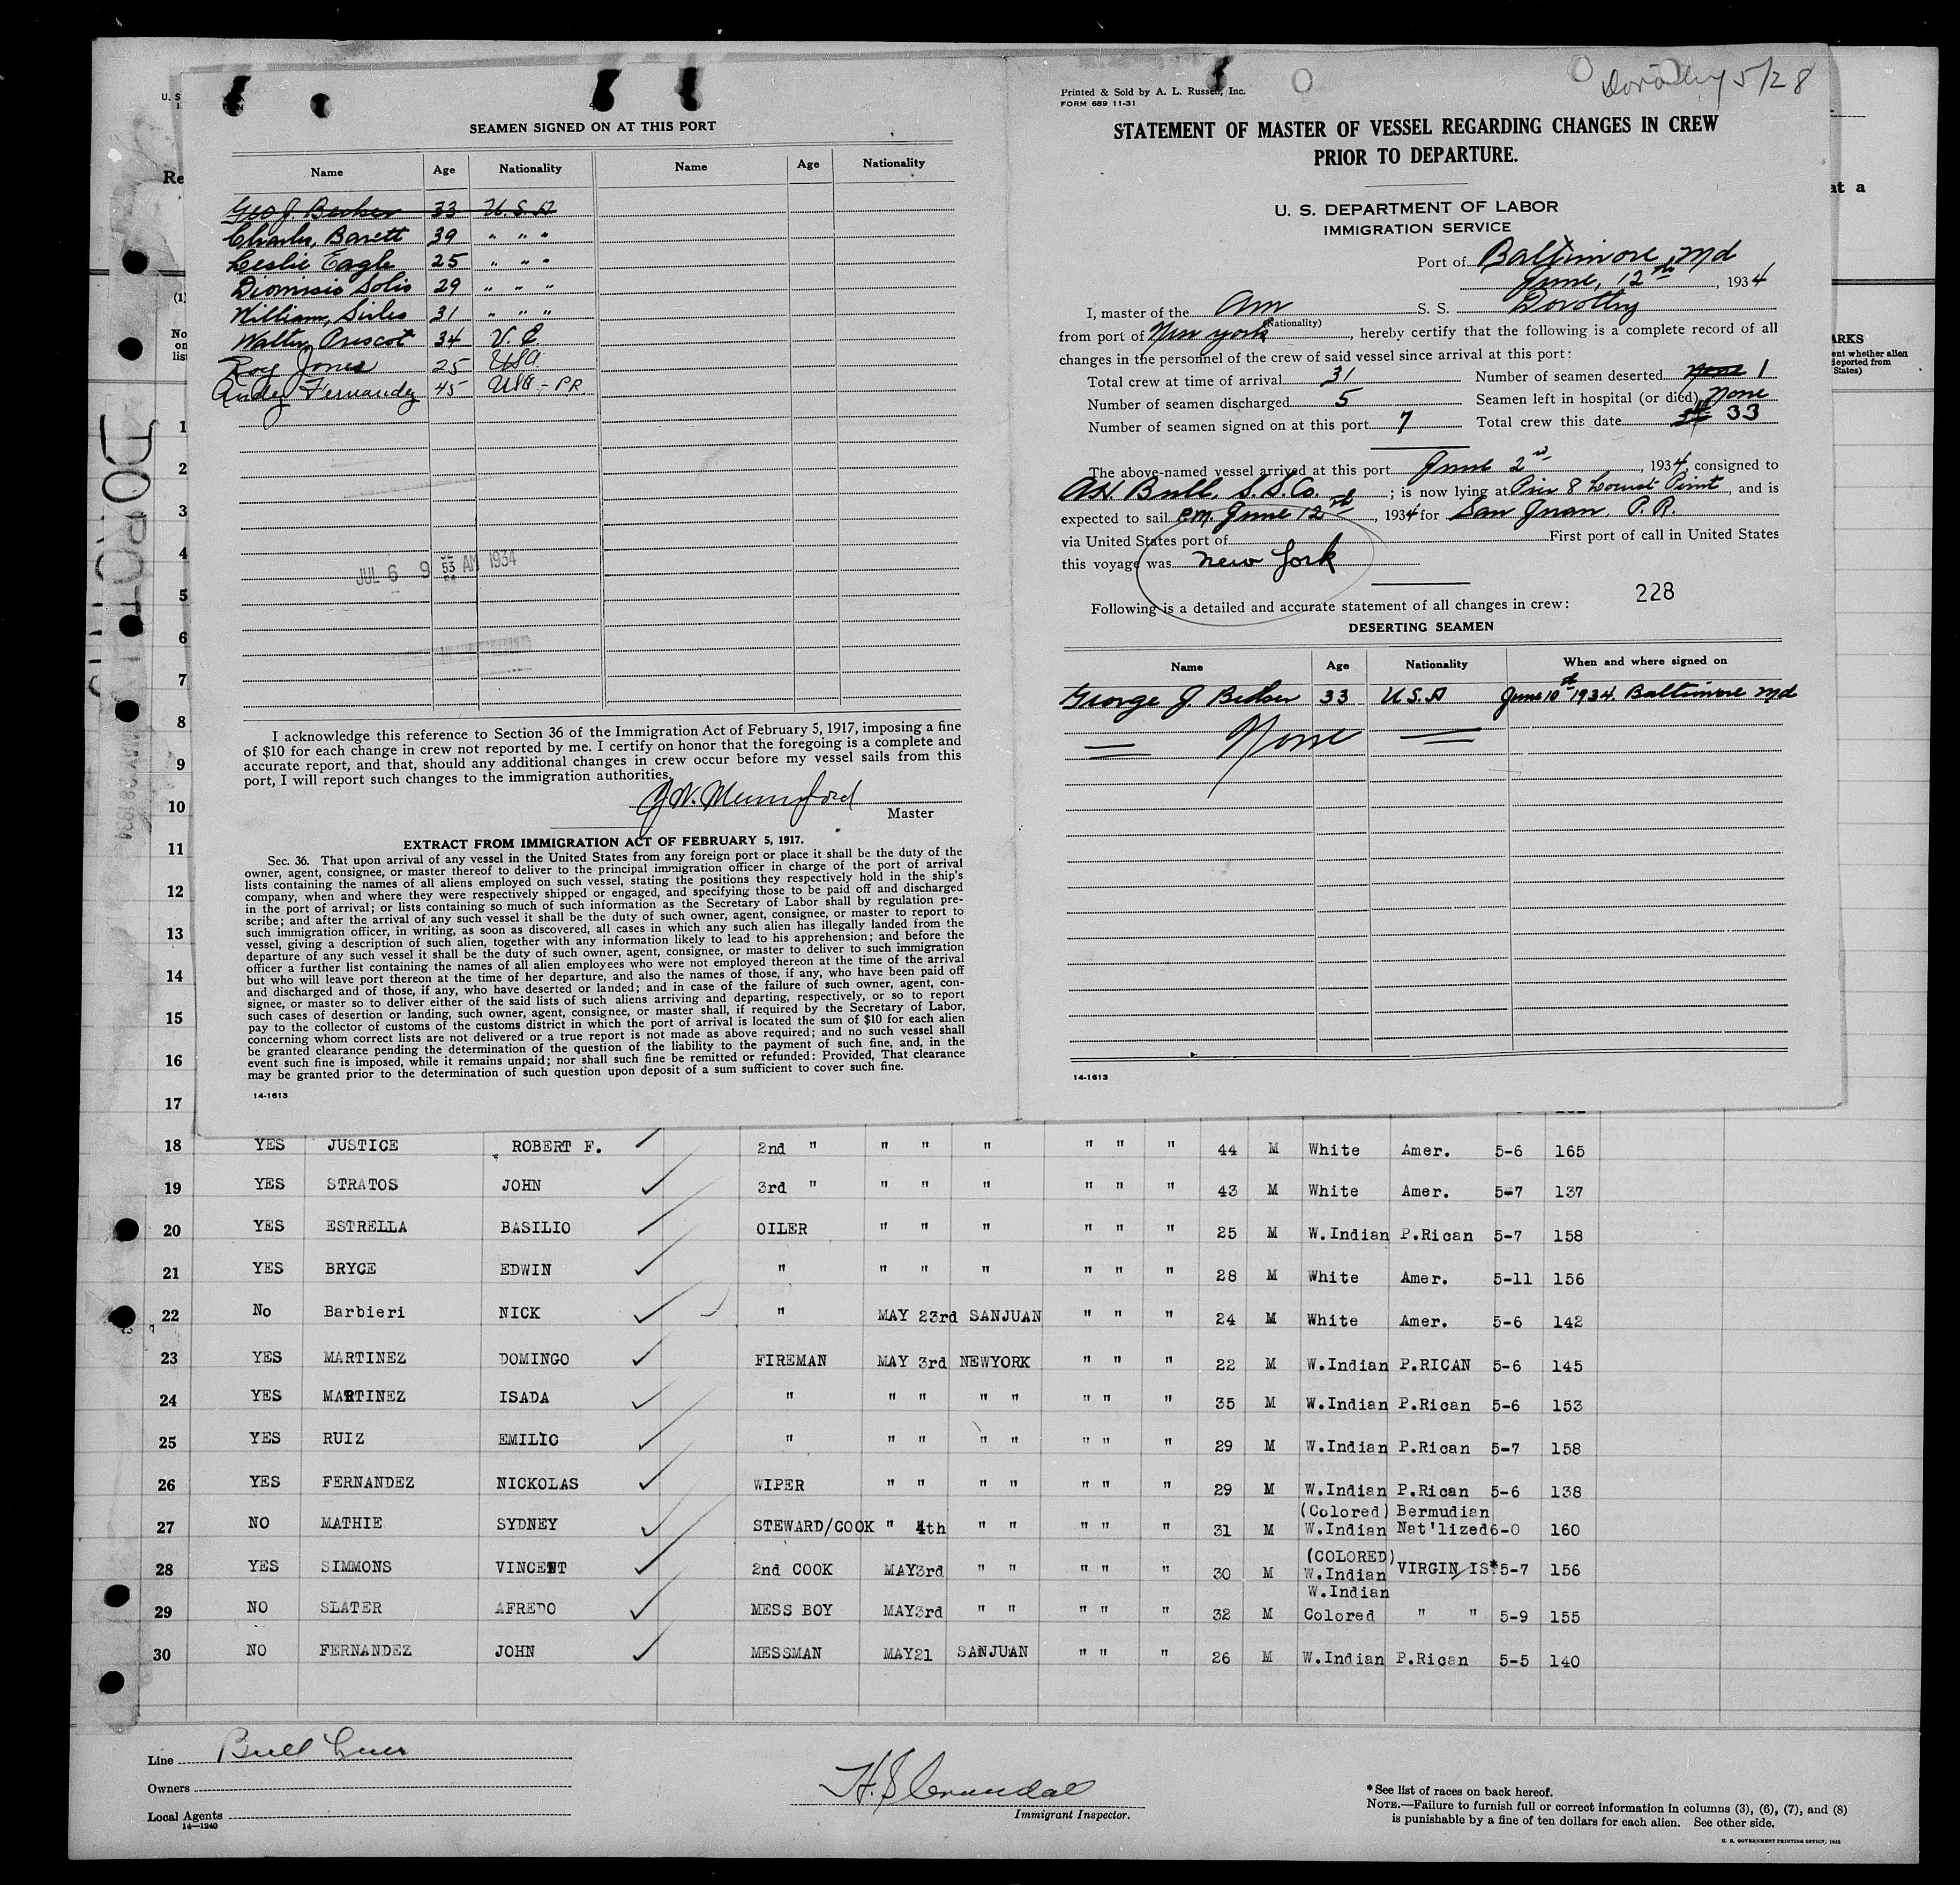 SEAMEN SIGNED ON AT THIS PORT
Name Age Nationality Name Age Nationality
Geo J. Becker 33 U.S.A
Charles, Barett 39 " " "
Leslie Eagle 25 " " "
Dionisio Solis 29 " " "
William, Sirles 31 " " "
Walter Criscot 34
Roy Jones 25 USA.
Andez Fernandez 45 USA - P.R.
JUL 6 9 53 AM 1934
I acknowledge this reference to Section 36 of the Immigration Act of February 5, 1917, imposing a fine
of $10 for each change in crew not reported by me. I certify on honor that the foregoing is a complete and
accurate report, and that, should any additional changes in crew occur before my vessel sails from this
port, I will report such changes to the immigration authorities.
J.W. Mumford
Master
EXTRACT FROM IMMIGRATION ACT OF FEBRUARY 5, 1917.
Sec. 36. That upon arrival of any vessel in the United States from any foreign port or place it shall be the duty of the
owner, agent, consignee, or master thereof to deliver to the principal immigration officer in charge of the port of arrival
lists containing the names of all aliens employed on such vessel, stating the positions they respectively hold in the ship's
company, when and where they were respectively shipped or engaged, and specifying those to be paid off and discharged
in the port of arrival; or lists containing so much of such information as the Secretary of Labor shall by regulation pre-
scribe; and after the arrival of any such vessel it shall be the duty of such owner, agent, consignee, or master to report to
such immigration officer, in writing, as soon as discovered, all cases in which any such alien has illegally landed from the
vessel, giving a description of such alien, together with any information likely to lead to his apprehension; and before the
departure of any such vessel it shall be the duty of such owner, agent, consignee, or master to deliver to such immigration
officer a further list containing the names of all alien employees who were not employed thereon at the time of the arrival
but who will leave port thereon at the time of her departure, and also the names of those, if any, who have been paid off
and discharged and of those, if any, who have deserted or landed; and in case of the failure of such owner, agent, con-
signee, or master so to deliver either of the said lists of such aliens arriving and departing, respectively, or so to report
such cases of desertion or landing, such owner, agent, consignee, or master shall, if required by the Secretary of Labor,
pay to the collector of customs of the customs district in which the port of arrival is located the sum of $10 for each alien
concerning whom correct lists are not delivered or a true report is not made as above required; and no such vessel shall
be granted clearance pending the determination of the question of the liability to the payment of such fine, and, in the
event such fine is imposed, while it remains unpaid; nor shall such fine be remitted or refunded: Provided, That clearance
may be granted prior to the determination of such question upon deposit of a sum sufficient to cover such fine.
14-1613
Dorothy 5/28
Printed & Sold by A. L. Russell, Inc.
FORM 689 11-31
STATEMENT OF MASTER OF VESSEL REGARDING CHANGES IN CREW
PRIOR TO DEPARTURE.
U. S. DEPARTMENT OF LABOR
IMMIGRATION SERVICE
Port of Baltimore, Md
June, 12th, 1934
I, master of the Am S. S. Dorothy
(Nationality)
from port of New york, hereby certify that the following is a complete record of all
changes in the personnel of the crew of said vessel since arrival at this port:
Total crew at time of arrival 31 Number of seamen deserted None 1
Number of seamen discharged 5 Seamen left in hospital (or died) None
Number of seamen signed on at this port 7 Total crew this date 33
The above-named vessel arrived at this port June 2nd, 1934, consigned to
AH Bull. S.S. Co. ; is now lying at Pier 8 Locust Point, and is
expected to sail P.M. June 12th, 1934 for San Juan. P.R.
via United States port of First port of call in United States
this voyage was New York
228
Following is a detailed and accurate statement of all changes in crew:
DESERTING SEAMEN
Name Age Nationality When and where signed on
George J. Becker 33 U.S.A June 10th 1934. Baltimore Md
None
14-1613
DOROTHY
MAY 28 1934
1
2
3
4
5
6
7
8
9
10
11
12
13
14
15
16
17
18 YES JUSTICE ROBERT F. 2nd " " " " " " " 44 M White Amer. 5-6 165
19 YES STRATOS JOHN 3rd " " " " " " " 43 M White Amer. 5-7 137
20 YES ESTRELLA BASILIO OILER " " " " " " 25 M W.Indian P.Rican 5-7 158
21 YES BRYCE EDWIN " " " " " " " 28 M White Amer. 5-11 156
22 No Barbieri NICK " MAY 23rd SANJUAN " " " 24 M White Amer. 5-6 142
23 YES MARTINEZ DOMINGO FIREMAN MAY 3rd NEWYORK " " " 22 M W.Indian P.RICAN 5-6 145
24 YES MARTINEZ ISADA " " " " " " " " 35 M W.Indian P.Rican 5-6 153
25 YES RUIZ EMILIO " " " " " " " " 29 M W.Indian P.Rican 5-7 158
26 YES FERNANDEZ NICKOLAS WIPER " " " " " " " 29 M W.Indian P.Rican 5-6 138
(Colored) Bermudian
27 NO MATHIE SYDNEY STEWARD/COOK " 4th " " " " " 31 M W.Indian Nat'lized 6-0 160
(COLORED)
28 YES SIMMONS VINCENT 2nd COOK MAY3rd " " " " " 30 M W.Indian VIRGIN IS* 5-7 156
W.Indian
29 NO SLATER AFREDO MESS BOY MAY3rd " " " " " 32 M Colored " " 5-9 155
30 NO FERNANDEZ JOHN MESSMAN MAY21 SANJUAN " " " 26 M W.Indian P.Rican 5-5 140
Line Bull Lines
Owners
Local Agents
14-1240
H. S. Crandal
Immigrant Inspector.
* See list of races on back hereof.
NOTE.—Failure to furnish full or correct information in columns (3), (6), (7), and (8)
is punishable by a fine of ten dollars for each alien. See other side.
U. S. GOVERNMENT PRINTING OFFICE, 1932